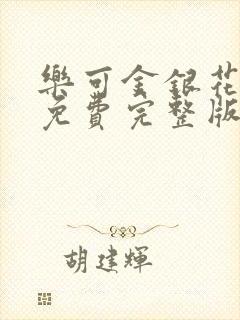 樂可金銀花
免費完整版
胡建輝